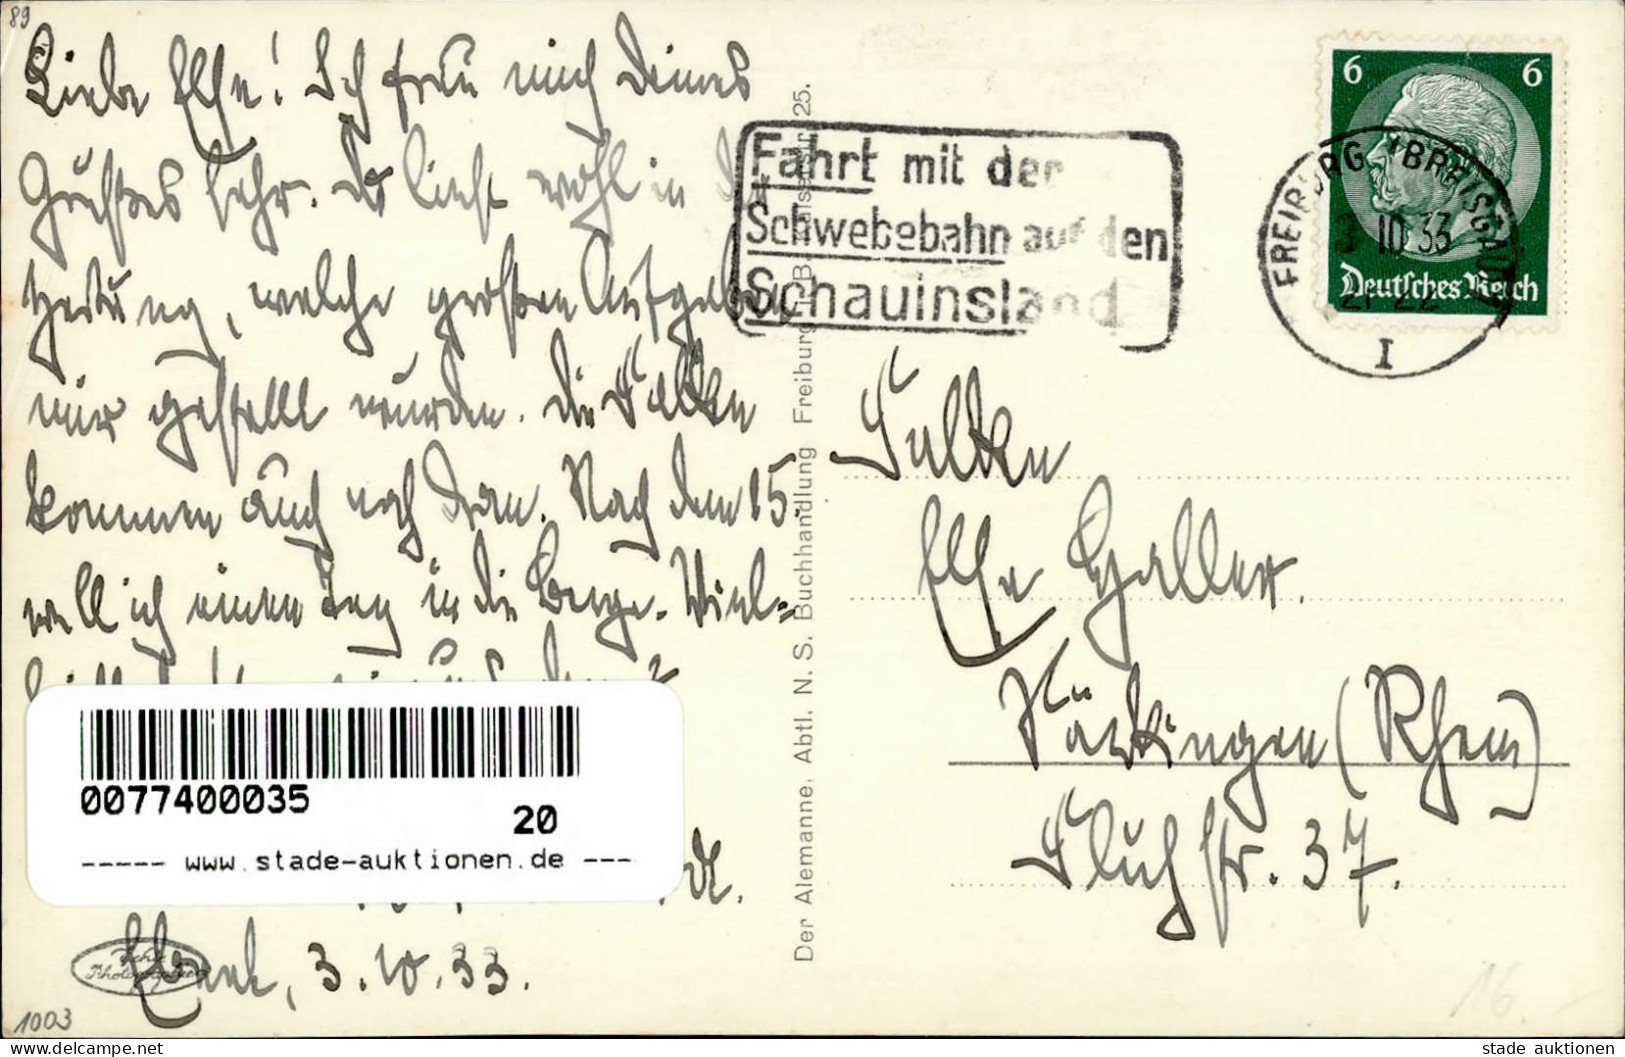 89
Liebe Else! Ich freu mich Deines
Grußes sehr. Du liest wohl in der
Zeitung, welche großen Aufgaben
mir gestellt wurden. Die Falken
kommen auch noch dran. Nach dem 15.
will ich einen Tag in die Berge. Viel=
Elsbeth, 3.10.33.
1003
0077400035
20
----- www.stade-auktionen.de ---
Der Alemanne, Abtl. N. S. Buchhandlung Freiburg 25.
Fahrt mit der
Schwebebahn auf den
Schauinsland
6 6
Deutsches Reich
FREIBURG (BREISGAU)
3.10.33
21-22
I
Falken
Else Galler.
Säckingen (Rhein)
Fluhstr. 37.
16.-
delcampe.net
stade auktionen